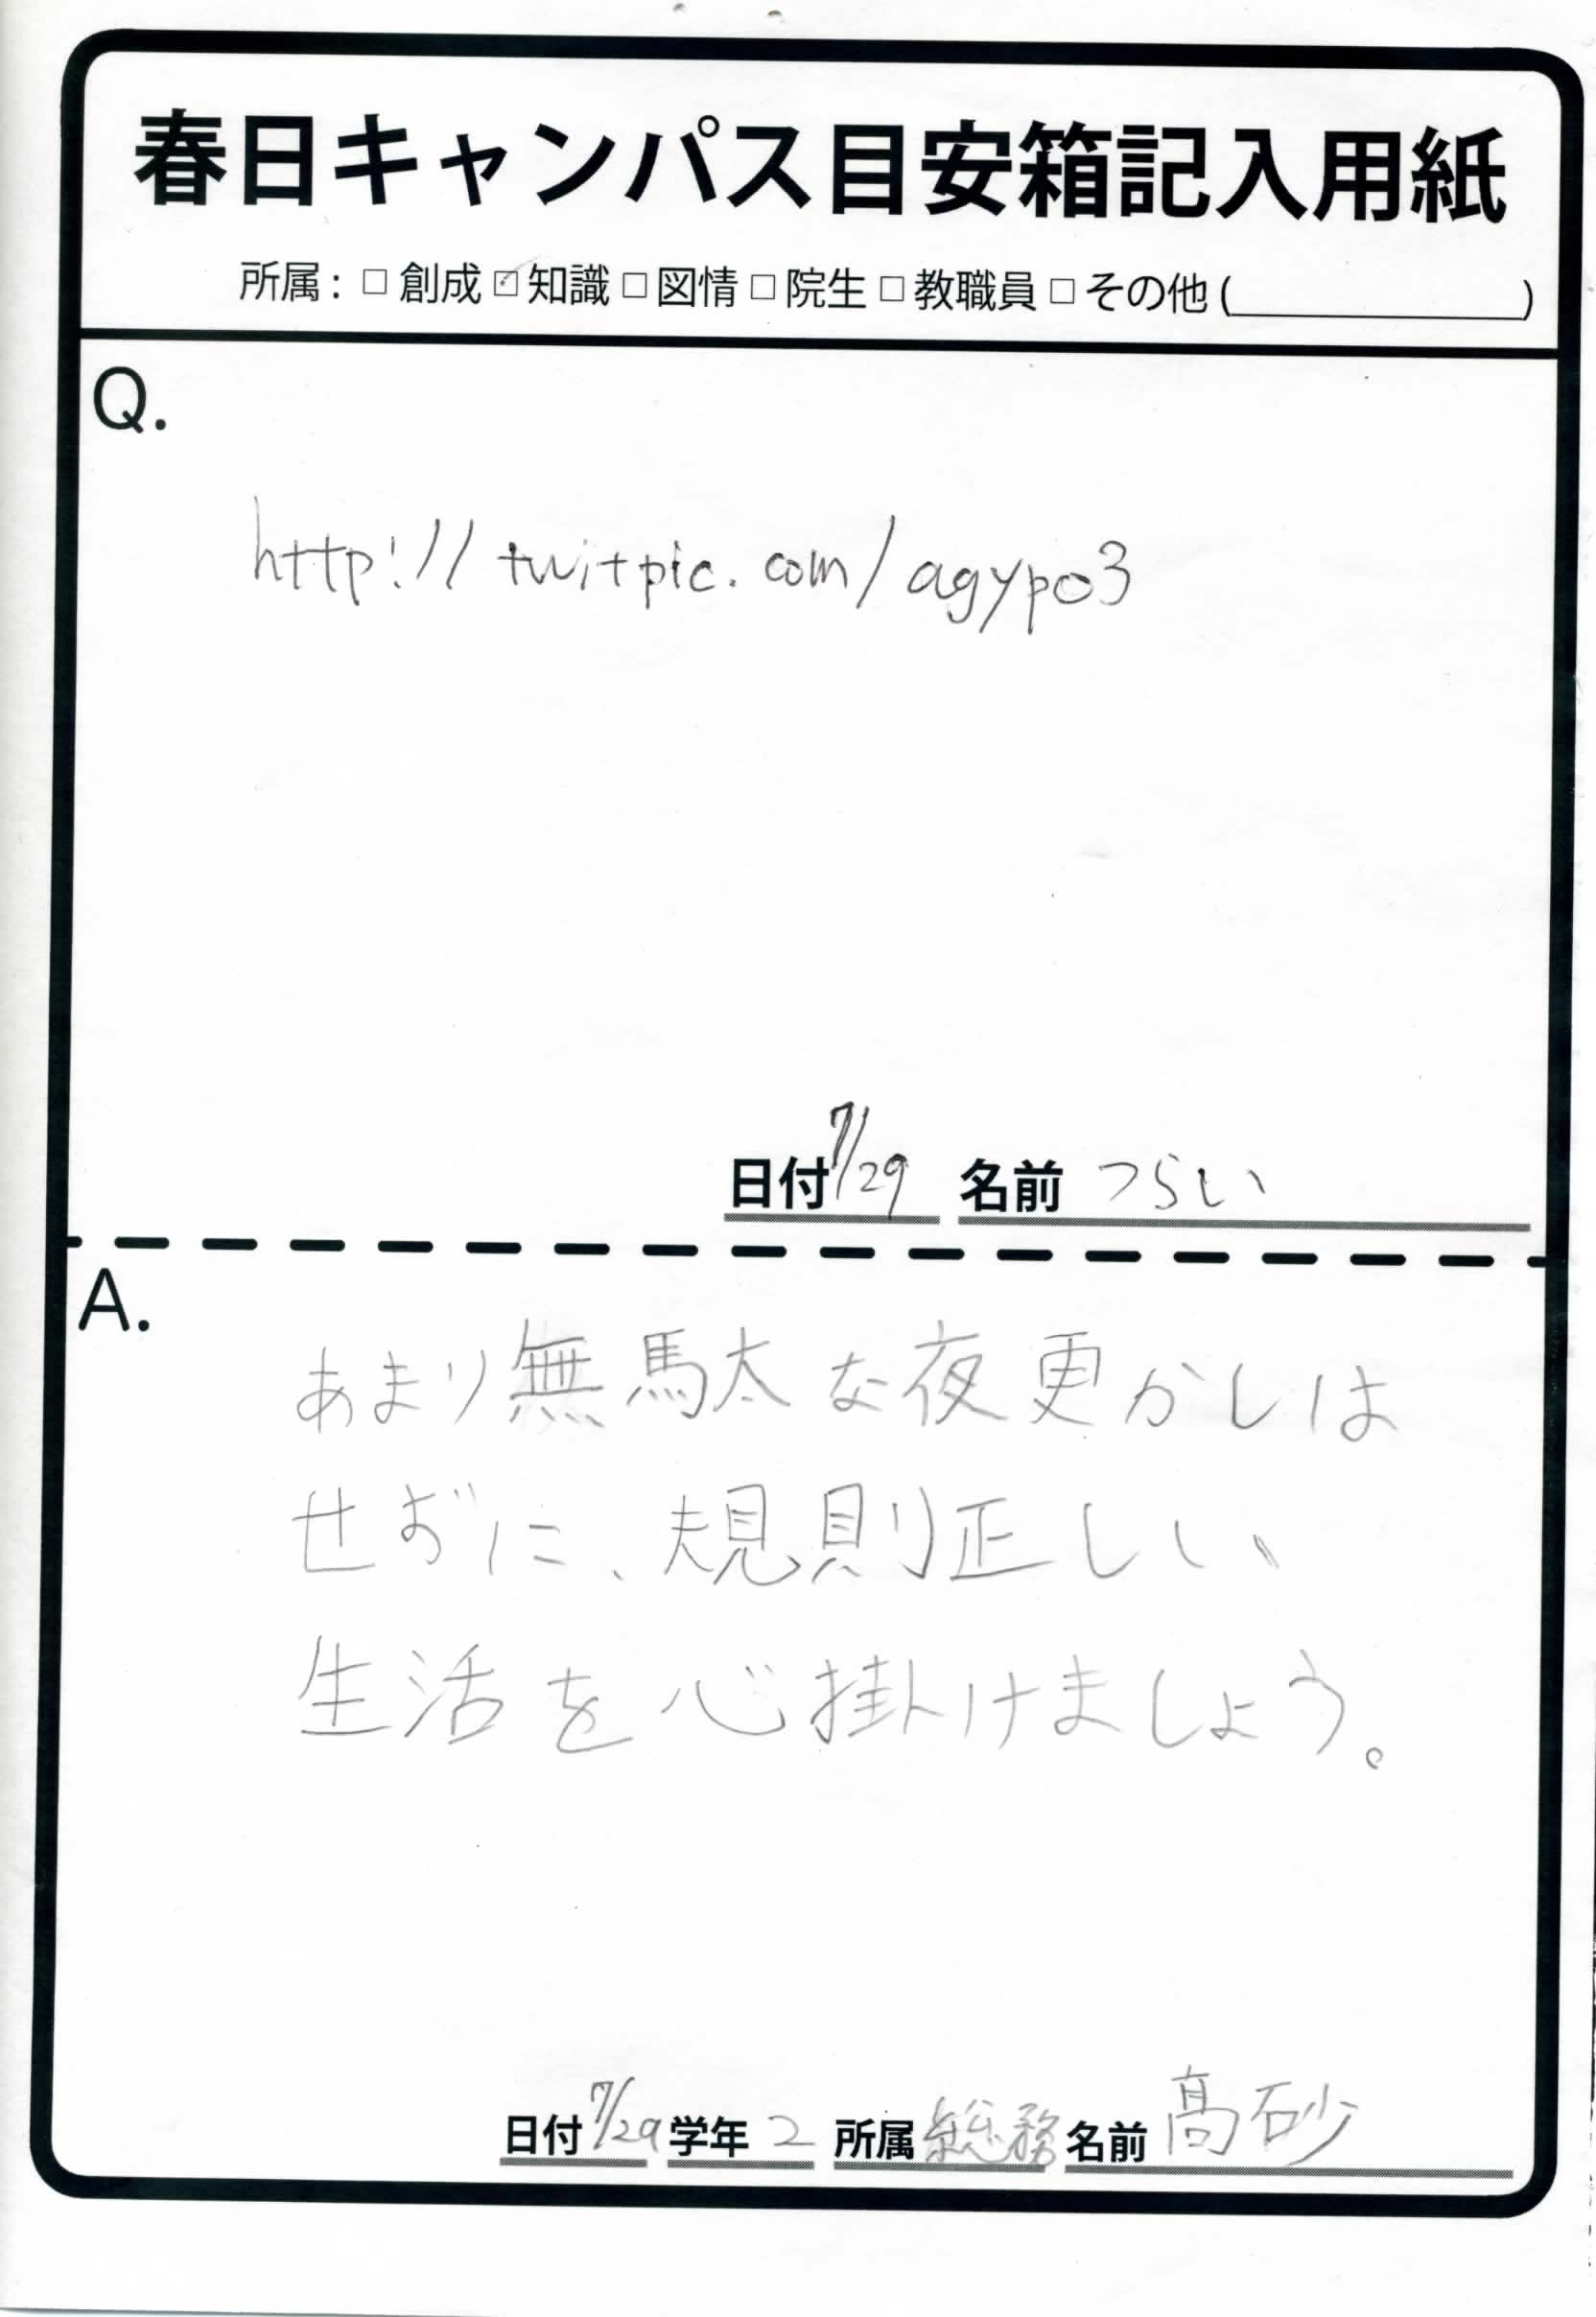 春日キャンパス目安箱記入用紙
所属: □ 創成 ☑ 知識 □ 図情 □ 院生 □ 教職員 □ その他 (　　　　　)
Q.
http://twitpic.com/agypo3
日付 7/29 名前 つらい
A.
あまり無駄な夜更かしは
せずに、規則正しい
生活を心掛けましょう。
日付 7/29 学年 2 所属 総務 名前 髙砂